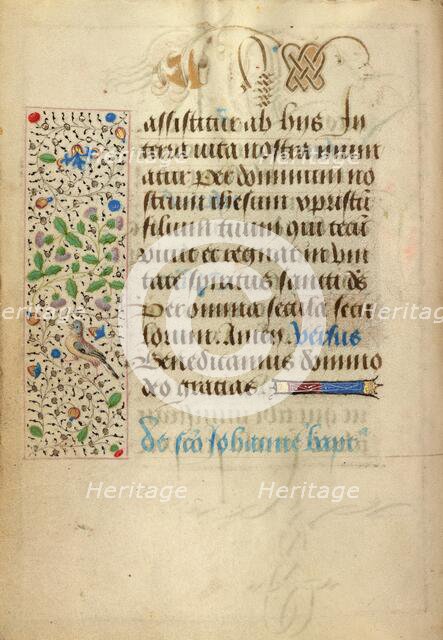 assistitur ab hys In
terra vita nostra muni
atur Per dominum no
strum ihesum xpristū
filium tuum Qui tecū
viuit et regnat in vni
tate spiritus sancti ds̄
Per omnia secula secu
lorum. Amen. Versus
Benedicamus domino
deo gracias
De scō Johanne bapt
Heritage
Heritage
Heritage
Heritage
Heritage